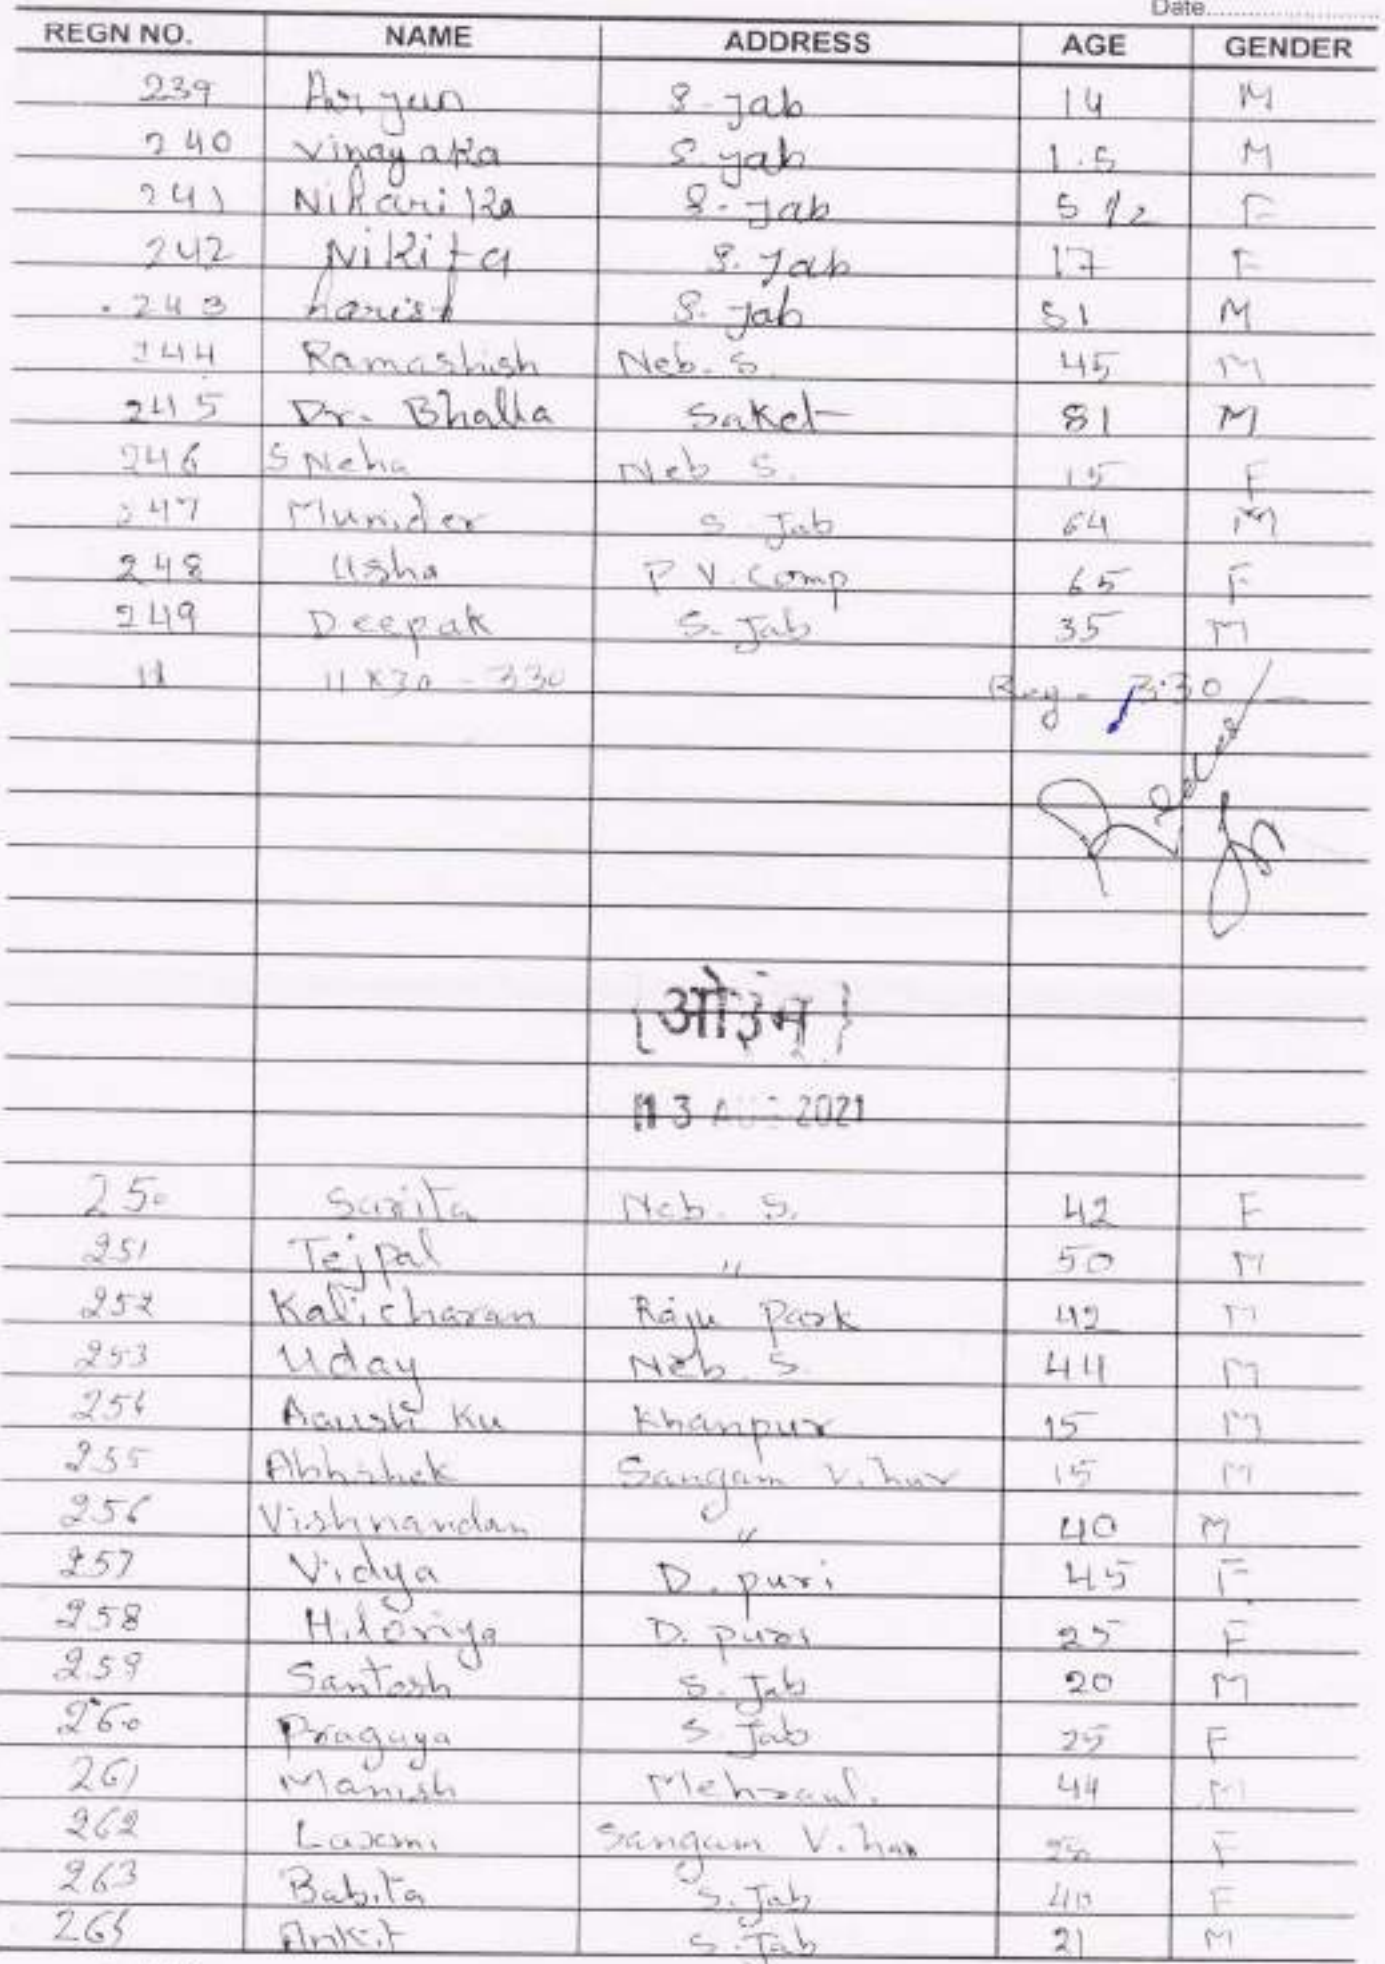 Date..........................
REGN NO. NAME ADDRESS AGE GENDER
239 Aryun S-Jab 14 M
240 Vinayaka S-Jab 1.5 M
241 Niharika S-Jab 5 1/2 F
242 Nikita S. Jab 17 F
243 harish S. Jab 51 M
244 Ramashish Neb. S. 45 M
245 Dr. Bhalla Saket 81 M
246 S Neha Neb S. 15 F
247 Munider S. Jab 64 M
248 Usha P V. Comp 65 F
249 Deepak S. Jab 35 M
11 11 x 30 - 330 3:30
{ओउम्}
13 AUG 2021
250 Sarita Neb. S. 42 F
251 Tejpal " 50 M
252 Kalicharan Raju Park 42 M
253 Uday Neb. S. 44 M
254 Ku Khanpur 15 M
255 Abhishek Sangam Vihar 15 M
256 Vishnandan " 40 M
257 Vidya D. puri 45 F
258 D. puri 25 F
259 Santosh S. Jab 20 M
260 Pragaya S. Jab 25 F
261 Manish Mehrauli 44 M
262 Laxmi Sangam Vihar F
263 Babita S. Jab 40 F
264 Ankit S. Jab 21 M